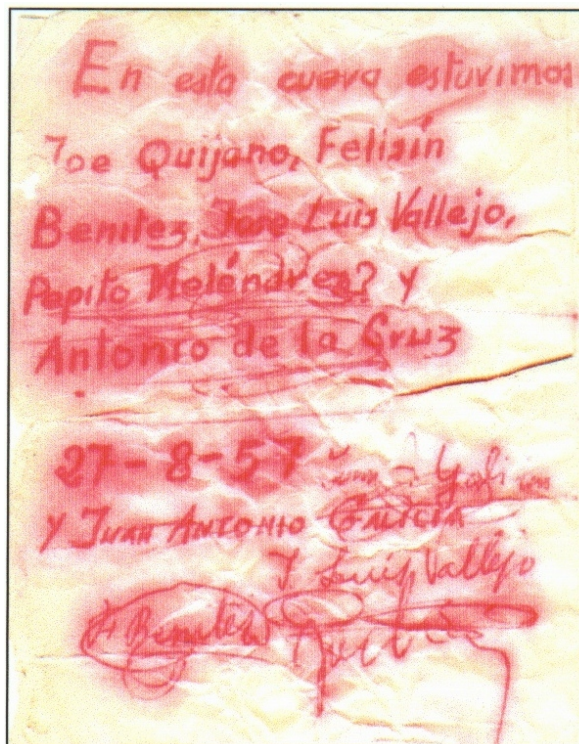 En esta cueva estuvimos
Joe Quijano, Felisín
Benitez, Jose Luis Vallejo,
Pepito Meléndrez? y
Antonio de la Cruz
27-8-57
y JUAN ANTONIO GALICIA
J. Luis Vallejo
F. Benitez